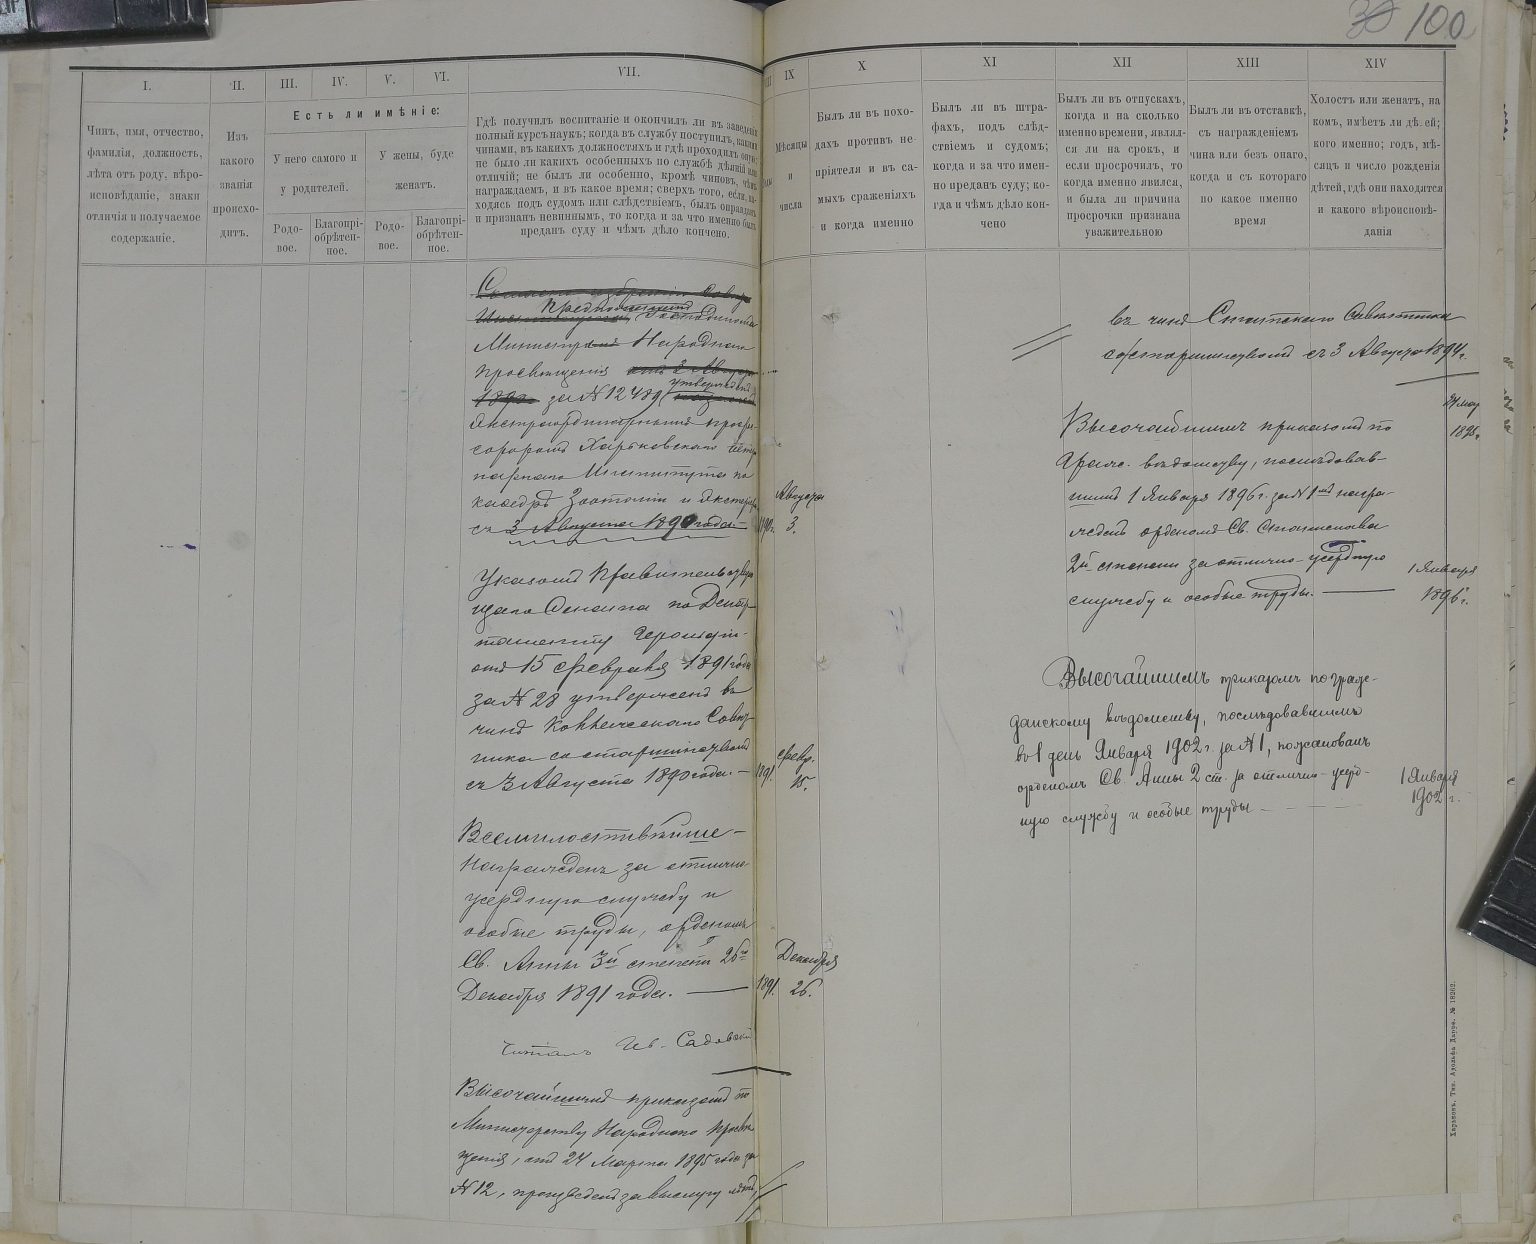 100
I.
II.
III.
IV.
V.
VI.
VII.
Есть ли имѣніе:
Чинъ, имя, отчество,
фамилія, должность,
лѣта отъ роду, вѣро-
исповѣданіе, знаки
отличія и получаемое
содержаніе.
Изъ
какого
званія
происхо-
дитъ.
У него самого и
у родителей.
У жены, буде
женатъ.
Родо-
вое.
Благопрі-
обрѣтен-
ное.
Родо-
вое.
Благопрі-
обрѣтен-
ное.
Гдѣ получилъ воспитаніе и окончилъ ли въ заведеніи
полный курсъ наукъ; когда въ службу поступилъ, какими
чинами, въ какихъ должностяхъ и гдѣ проходилъ оную;
не было ли какихъ особенныхъ по службѣ дѣяній или
отличій; не былъ ли особенно, кромѣ чиновъ, чѣмъ
награждаемъ, и въ какое время; сверхъ того, если, на-
ходясь подъ судомъ или слѣдствіемъ, былъ оправданъ
и признанъ невиннымъ, то когда и за что именно былъ
преданъ суду и чѣмъ дѣло кончено.
Министра Народнаго
просвѣщенія
1890 за № 12489 утвержденъ
экстраординарнымъ профес-
соромъ Харьковскаго Вете-
ринарнаго Института по
кафедрѣ Зоотоміи и
съ 3 Августа 1890 года.
Указомъ Правительствую-
щаго Сената по Депар-
таменту Герольдіи
отъ 15 февраля 1891 года
за № 28 утвержденъ въ
чинѣ Коллежскаго Совѣт-
ника со старшинствомъ
съ 3 Августа 1890 года. —
Всемилостивѣйше —
награжденъ за отлично
усердную службу и
особые труды, орденомъ
Св. Анны 3й степени 26го
Декабря 1891 года. —
Читалъ Ив. Садовскій
Высочайшимъ приказомъ по
Министерству Народнаго Просвѣ-
щенія, отъ 24 Марта 1895 года за
№ 12, произведенъ за выслугу лѣтъ,
IX
X
XI
XII
XIII
XIV
Мѣсяцы
и
числа
Былъ ли въ похо-
дахъ противъ не-
пріятеля и въ са-
мыхъ сраженіяхъ
и когда именно
Былъ ли въ штра-
фахъ, подъ слѣд-
ствіемъ и судомъ;
когда и за что имен-
но преданъ суду; ко-
гда и чѣмъ дѣло кон-
чено
Былъ ли въ отпускахъ,
когда и на сколько
именно времени, являл-
ся ли на срокъ, и
если просрочилъ, то
когда именно явился,
и была ли причина
просрочки признана
уважительною
Былъ ли въ отставкѣ,
съ награжденіемъ
чина или безъ онаго,
когда и съ котораго
по какое именно
время
Холостъ или женатъ, на
комъ, имѣетъ ли дѣтей;
кого именно; годъ, мѣ-
сяцъ и число рожденія
дѣтей, гдѣ они находятся
и какого вѣроисповѣ-
данія
Августа
1890 г. 3.
февр.
1891. 15.
Декабря
1891. 26.
въ чинъ Статскаго Совѣтника
со старшинствомъ съ 3 Августа 1894 г.
24 мар
1895 г.
Высочайшимъ приказомъ по
гражд. вѣдомству, послѣдовав-
шимъ 1 Января 1896 г. за № 1мъ награ-
жденъ орденомъ Св. Станислава
2й степени за отлично-усердную
службу и особые труды. —
1 Января
1896 г.
Высочайшимъ приказомъ по граж-
данскому вѣдомству, послѣдовавшимъ
въ 1 день Января 1902 г. за № 1, пожалованъ
орденомъ Св. Анны 2 ст. за отлично-усерд-
ную службу и особые труды —
1 Января
1902 г.
Харьковъ. Тип. Адольфа Дарре. № 18262.